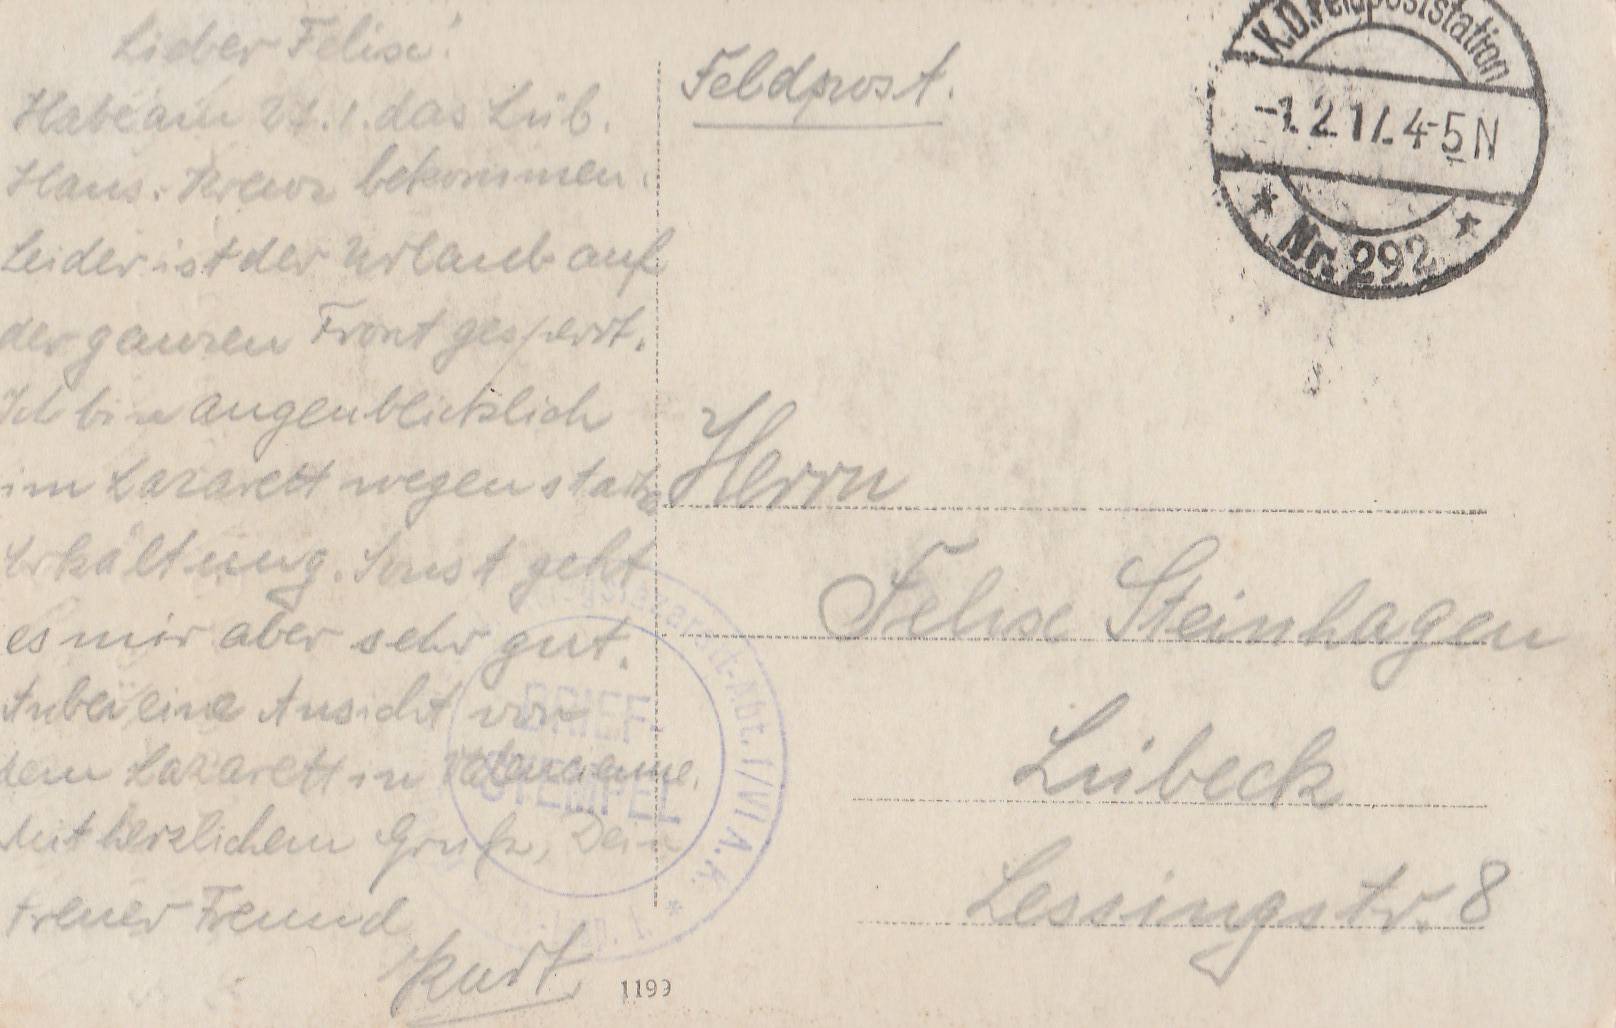 Lieber Felix!
Habe am 27.1. das Lüb.
Hans. Kreuz bekommen.
Leider ist der Urlaub auf
der ganzen Front gesperrt.
Ich bin augenblicklich
im Lazarett wegen starke
Erkältung. Sonst geht
es mir aber sehr gut.
Anbei eine Ansicht von
dem Lazarett in
Mit herzlichem Gruß, Dein
treuer Freund
Kurt.
1199
Feldpost.
K.D. Feldpoststation
-1.2.17. 4-5 N
* Nr. 292 *
Herrn
Felix Steinhagen
Lübeck
Lessingstr. 8
Kriegslazarett-Abt. 1/VI A.K. *
BRIEF-
STEMPEL